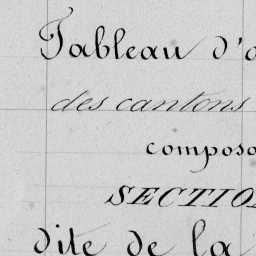 Tableau d'a
des cantons
composa
SECTION
dite de la